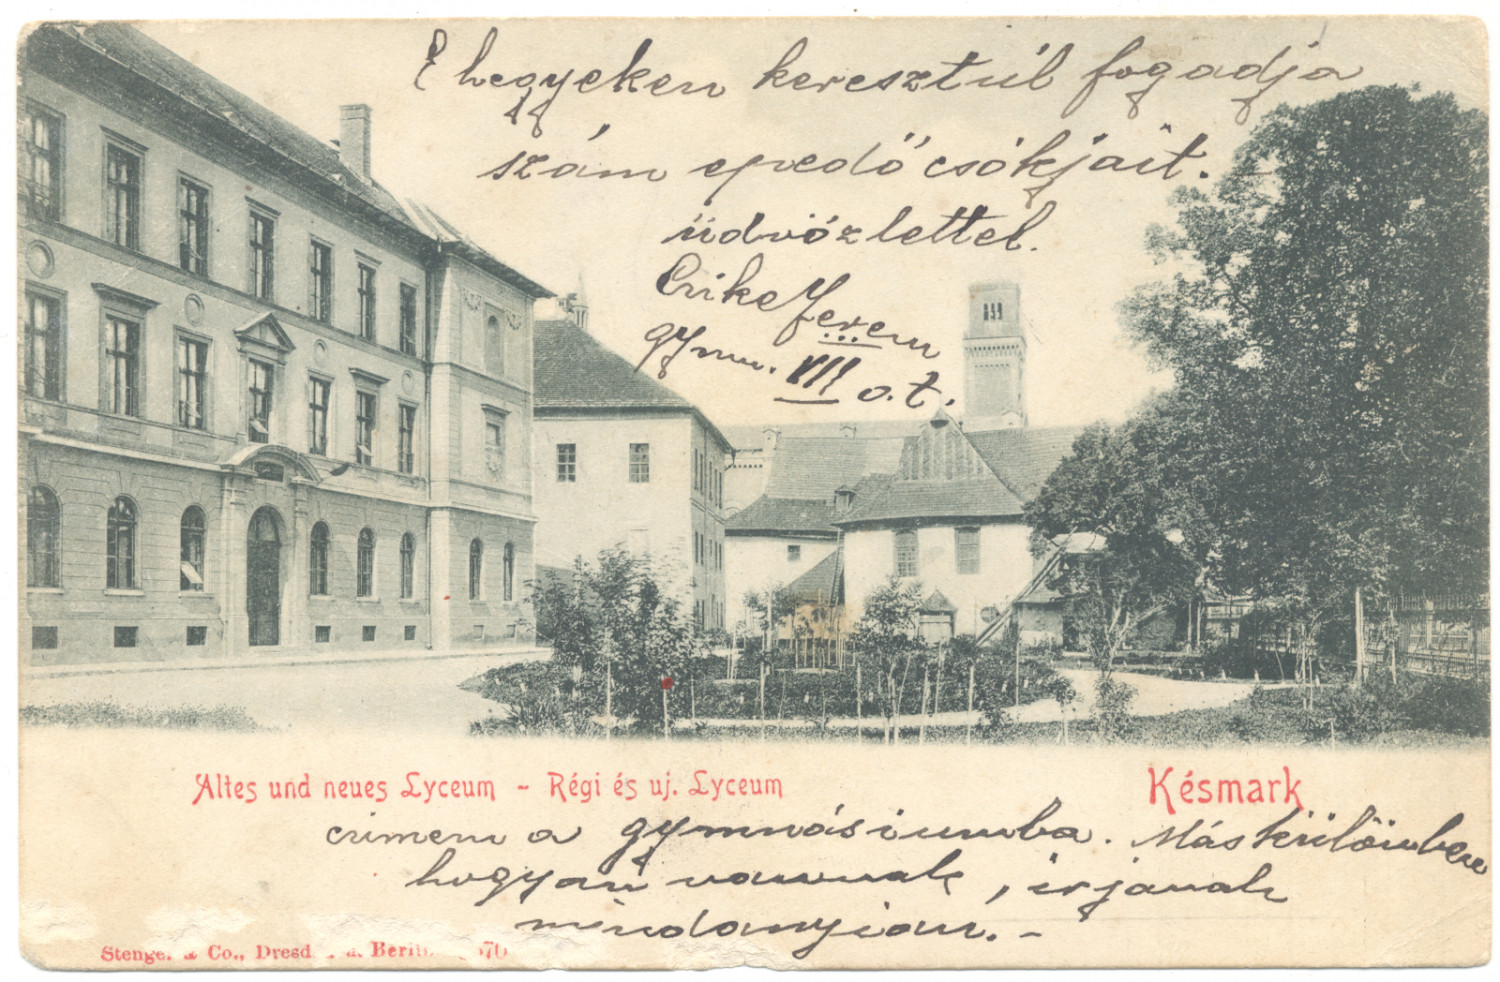 E hegyeken keresztúl fogadja
szám epedő csókjait.
üdvözlettel.
Ferem
gymn. VII o.t.
Altes und neues Lyceum - Régi és uj. Lyceum
Késmark
czimem a gymnásiumba. Máskülömben
hogyan vannak, irjanak
mindanyian. –
Stengel & Co., Dresd. Berlin 570